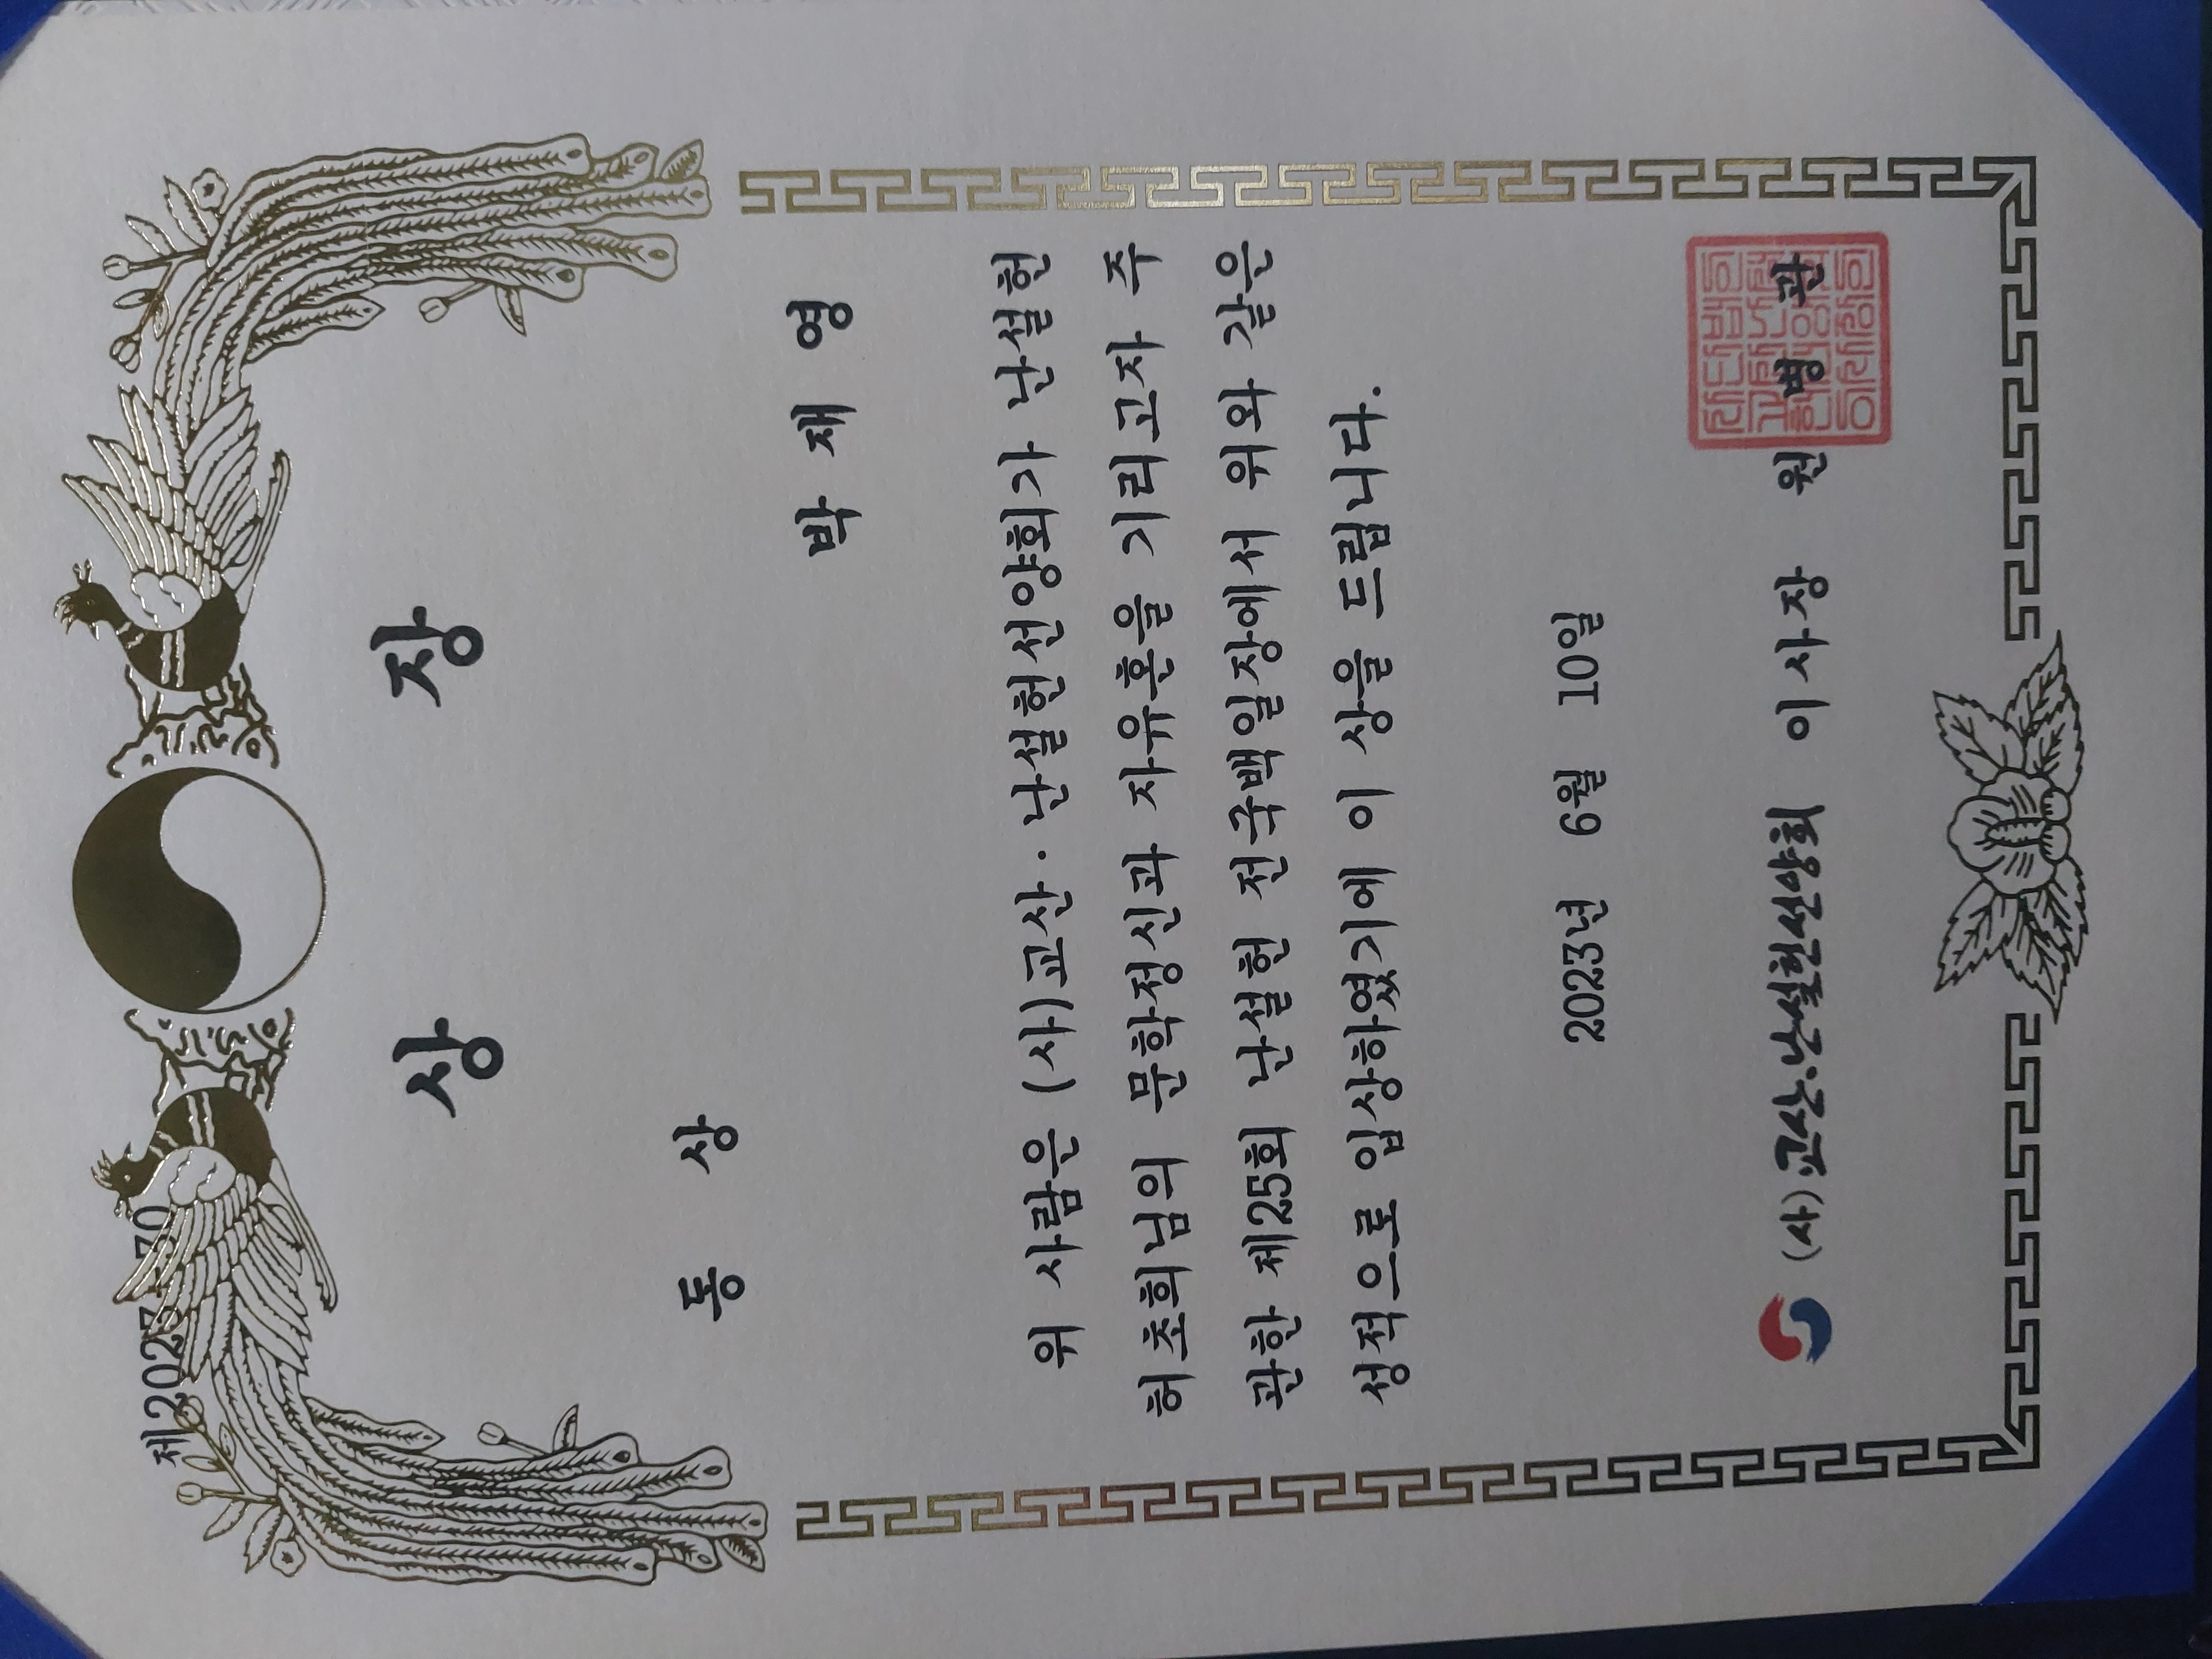 제2023-30
상 장
동 상
박 재 영
위 사람은 (사)교산·난설헌선양회가 난설헌
허초희님의 문학정신과 자유혼을 기리고자 주
관한 제25회 난설헌 전국백일장에서 위와 같은
성적으로 입상하였기에 이 상을 드립니다.
2023년 6월 10일
(사)교산·난설헌선양회 이사장 원 병 관